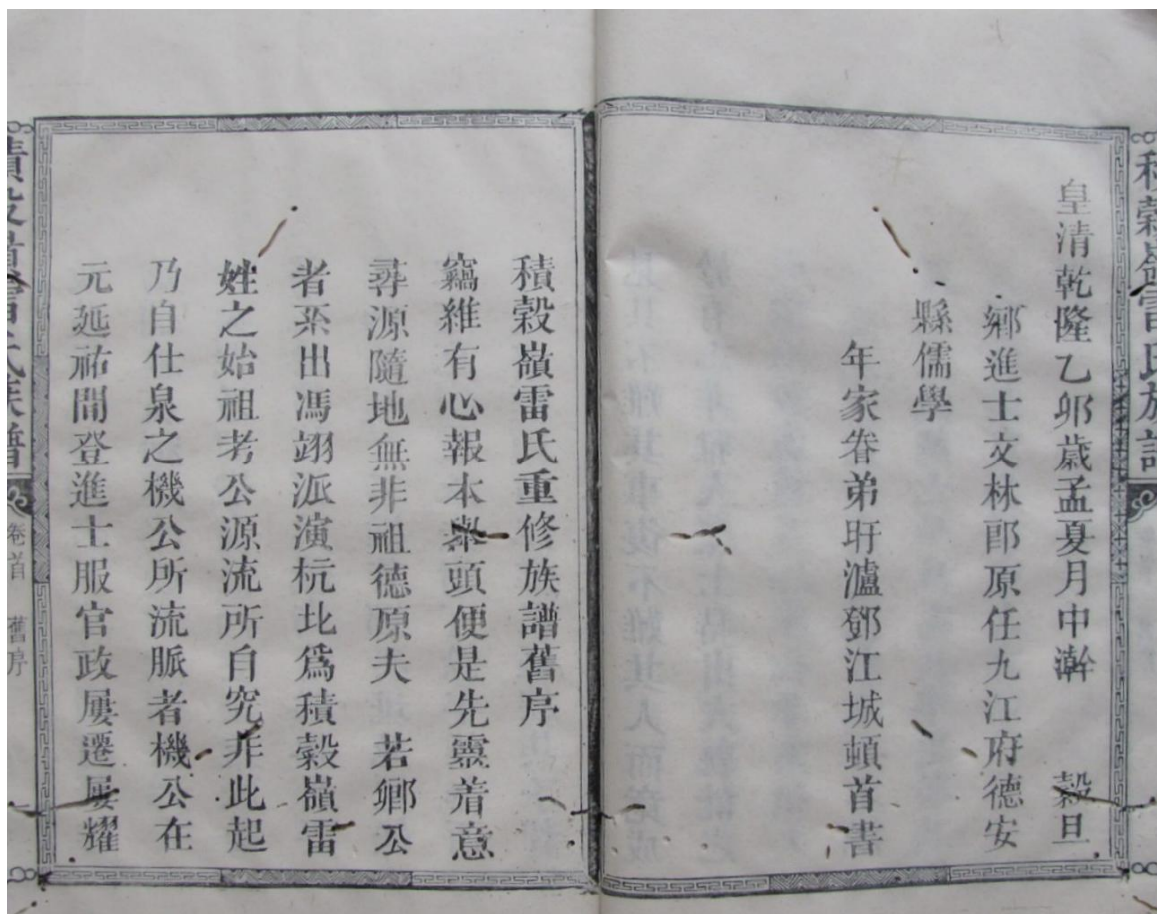 積穀嶺雷氏族譜
皇清乾隆乙卯歲孟夏月中澣 穀旦
鄉進士文林郎原任九江府德安
縣儒學
年家眷弟盱瀘鄧江城頓首書
積穀嶺雷氏重修族譜舊序
竊維有心報本舉頭便是先靈着意
尋源隨地無非祖德原夫 若鄉公
者系出馮翊派演杬北爲積穀嶺雷
姓之始祖考公源流所自究非此起
乃自仕泉之機公所流脈者機公在
元延祐間登進士服官政屢遷屢耀
積穀嶺雷氏族譜
卷首 舊序